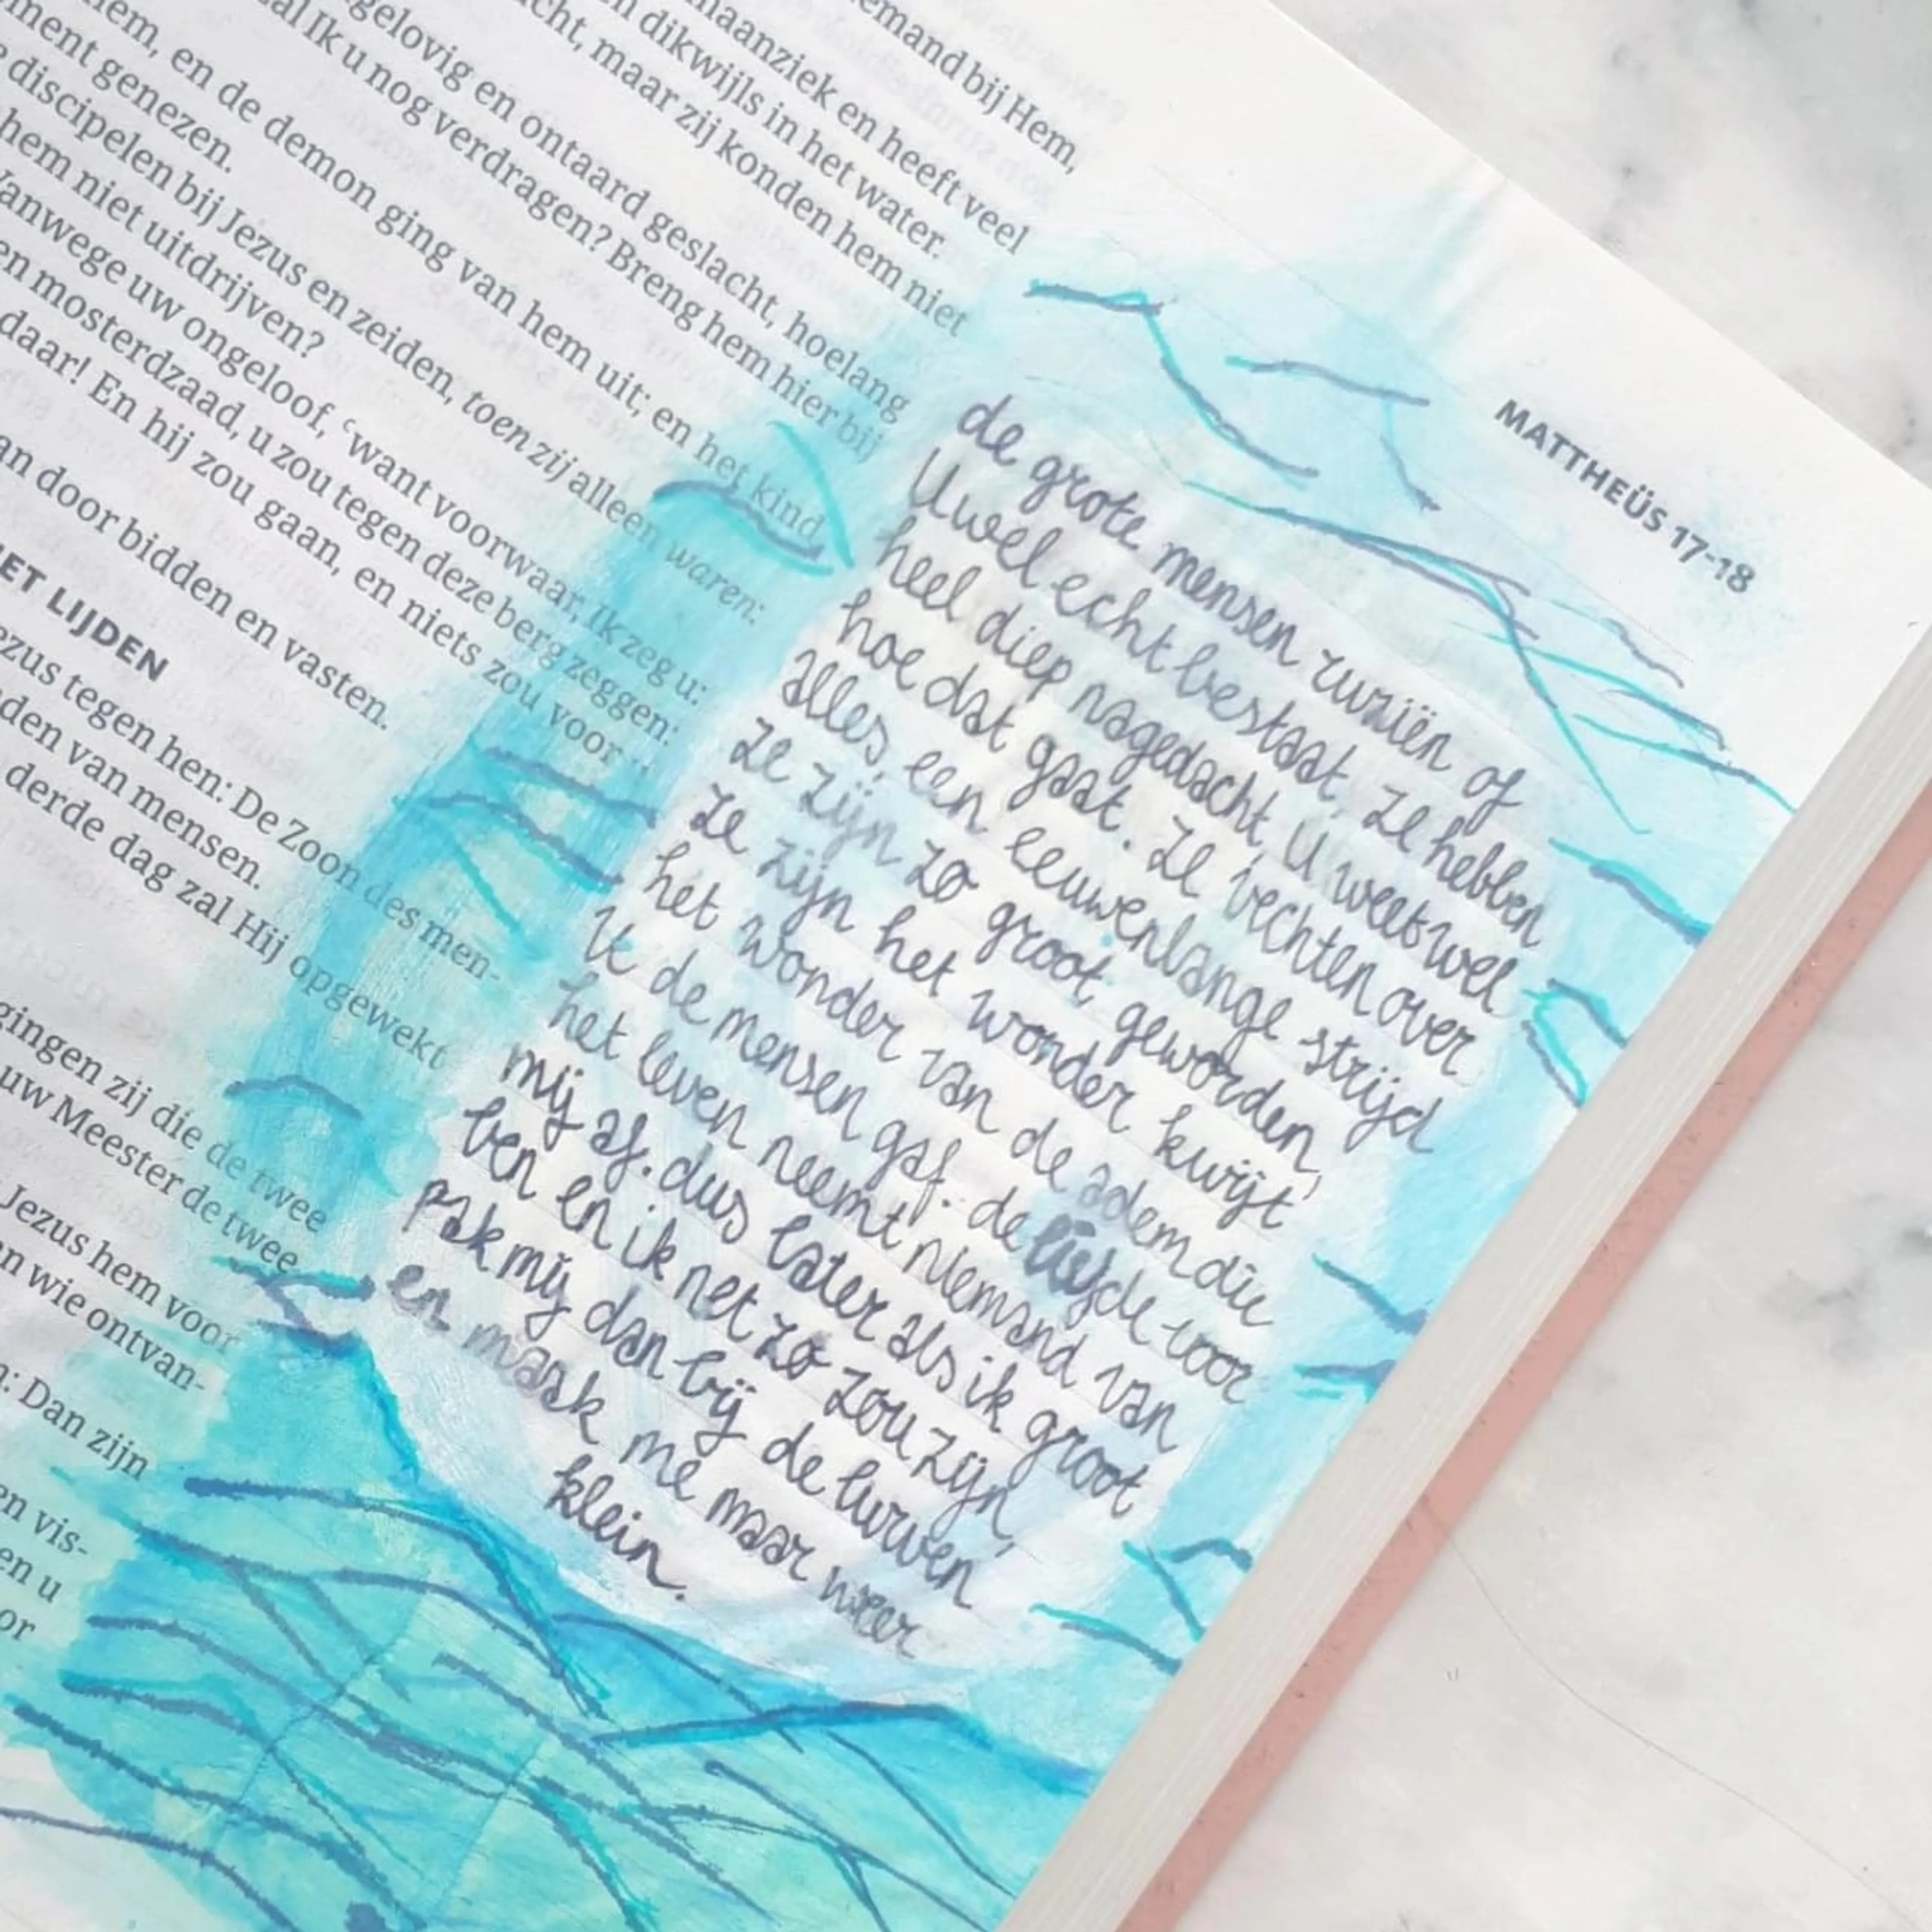 emand bij Hem,
maanziek en heeft veel
n dikwijls in het water.
cht, maar zij konden hem niet
gelovig en ontaard geslacht, hoelang
al Ik u nog verdragen? Breng hem hier bij
hem, en de demon ging van hem uit; en het kind
ment genezen.
discipelen bij Jezus en zeiden, toen zij alleen waren:
hem niet uitdrijven?
Vanwege uw ongeloof, ᶜwant voorwaar, Ik zeg u:
en mosterdzaad, u zou tegen deze berg zeggen:
daar! En hij zou gaan, en niets zou voor
an door bidden en vasten.
ET LIJDEN
ezus tegen hen: De Zoon des men-
den van mensen.
derde dag zal Hij opgewekt
gingen zij die de twee
uw Meester de twee
Jezus hem voor
n wie ontvan-
n: Dan zijn
en vis-
en u
or
MATTHEÜS 17-18
de grote mensen ruziën of
U wel echt bestaat. Ze hebben
heel diep nagedacht, U weet wel
hoe dat gaat. Ze vechten over
alles, een eeuwenlange strijd
ze zijn zo groot geworden,
ze zijn het wonder kwijt,
het wonder van de adem die
U de mensen gaf. de liefde voor
het leven neemt niemand van
mij af. dus later als ik groot
ben en ik net zo zou zijn,
pak mij dan bij de lurven
en maak me maar weer
klein.